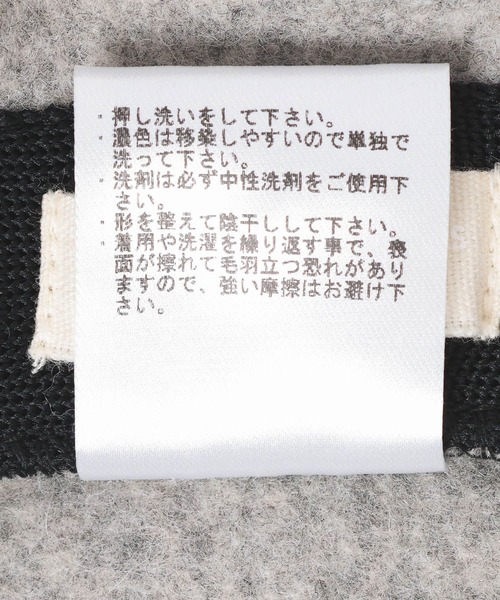 ・押し洗いをして下さい。
・濃色は移染しやすいので単独で
洗って下さい。
・洗剤は必ず中性洗剤をご使用下
さい。
・形を整えて陰干しして下さい。
・着用や洗濯を繰り返す事で、表
面が擦れて毛羽立つ恐れがあり
ますので、強い摩擦はお避け下
さい。